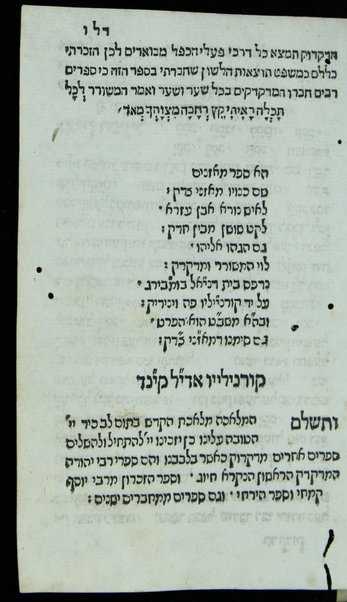 דל ו
הדקדוק תמצא כל דרכי פעלי הכפל מבוארים לכן הזכרתי
כללם כמשפט תוצאות הלשון שחברתי בספר הזה כי ספרים
רבים חברו המדקדקים בכל שער ושער ואמר המשורר לְכָל
תִכְלָה רָאִיתִי קֵץ רְחָבָה מִצְוָתְךָ מְאֹד׃
הא ספר מאזנים
שם כנויו מאזני צדק׃
לאיש נורא אבן עזרא׃
לקט שושן מבין חדק׃
גם הגהו אליהו׃
לוי המשורר ומדקדק׃
נדפס בית דניאל בומבירג׃
על יד קורניל״יו פה ויניזיה׃
ובה״א משבט הוא הפרט׃
גם סימנו דמאזני צדק׃
קורניליו אדיל קינד
ותשלם המלאכה מלאכת הקדש בתוס לבכיר יי״
הטובה עלינו כן יזכינו יי׳ להתחיל ולהשלים
ספרים אחרים מדקדוק כאשר בלבבנו והם ספרי רבי יהודה
המדקדק הראשון הנקרא חיוג׳ וספר הזכרון מרבי יוסף
קמחי וספר הריחי׳ וגם ספרים ממחברים ישנים׃